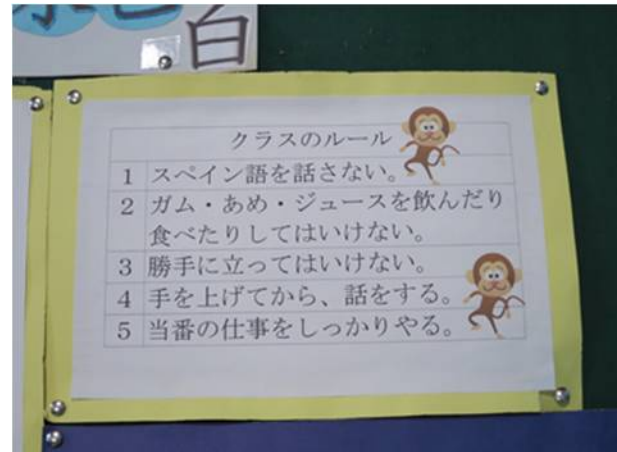 白
クラスのルール
1 スペイン語を話さない。
2 ガム・あめ・ジュースを飲んだり
食べたりしてはいけない。
3 勝手に立ってはいけない。
4 手を上げてから、話をする。
5 当番の仕事をしっかりやる。